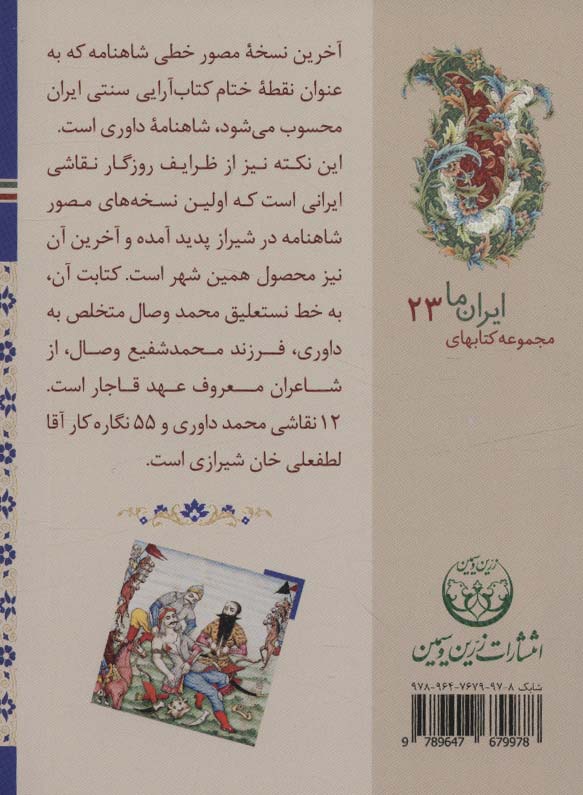 آخرین نسخهٔ مصور خطی شاهنامه که به
عنوان نقطهٔ ختام کتاب‌آرایی سنتی ایران
محسوب می‌شود، شاهنامهٔ داوری است.
این نکته نیز از ظرایف روزگار نقاشی
ایرانی است که اولین نسخه‌های مصور
شاهنامه در شیراز پدید آمده و آخرین آن
نیز محصول همین شهر است. کتابت آن،
به خط نستعلیق محمد وصال متخلص به
داوری، فرزند محمدشفیع وصال، از
شاعران معروف عهد قاجار است.
۱۲ نقاشی محمد داوری و ۵۵ نگاره کار آقا
لطفعلی خان شیرازی است.
ایران ما ۲۳
مجموعه کتابهای
زرین و سیمین
انتشارات زرین و سیمین
شابک ۸-۹۷-۷۶۷۹-۹۶۴-۹۷۸
9 789647 679978